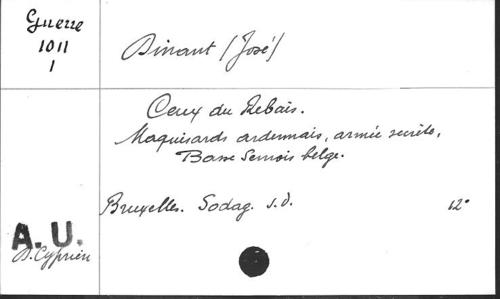 Guerre
1011
1
Dinant (José)
Ceux du Rebais.
Maquisards ardennais, armée secrète,
Basse Semois belge.
Bruxelles. Sodag. s.d. 12°
A. U.
D. Cyprien